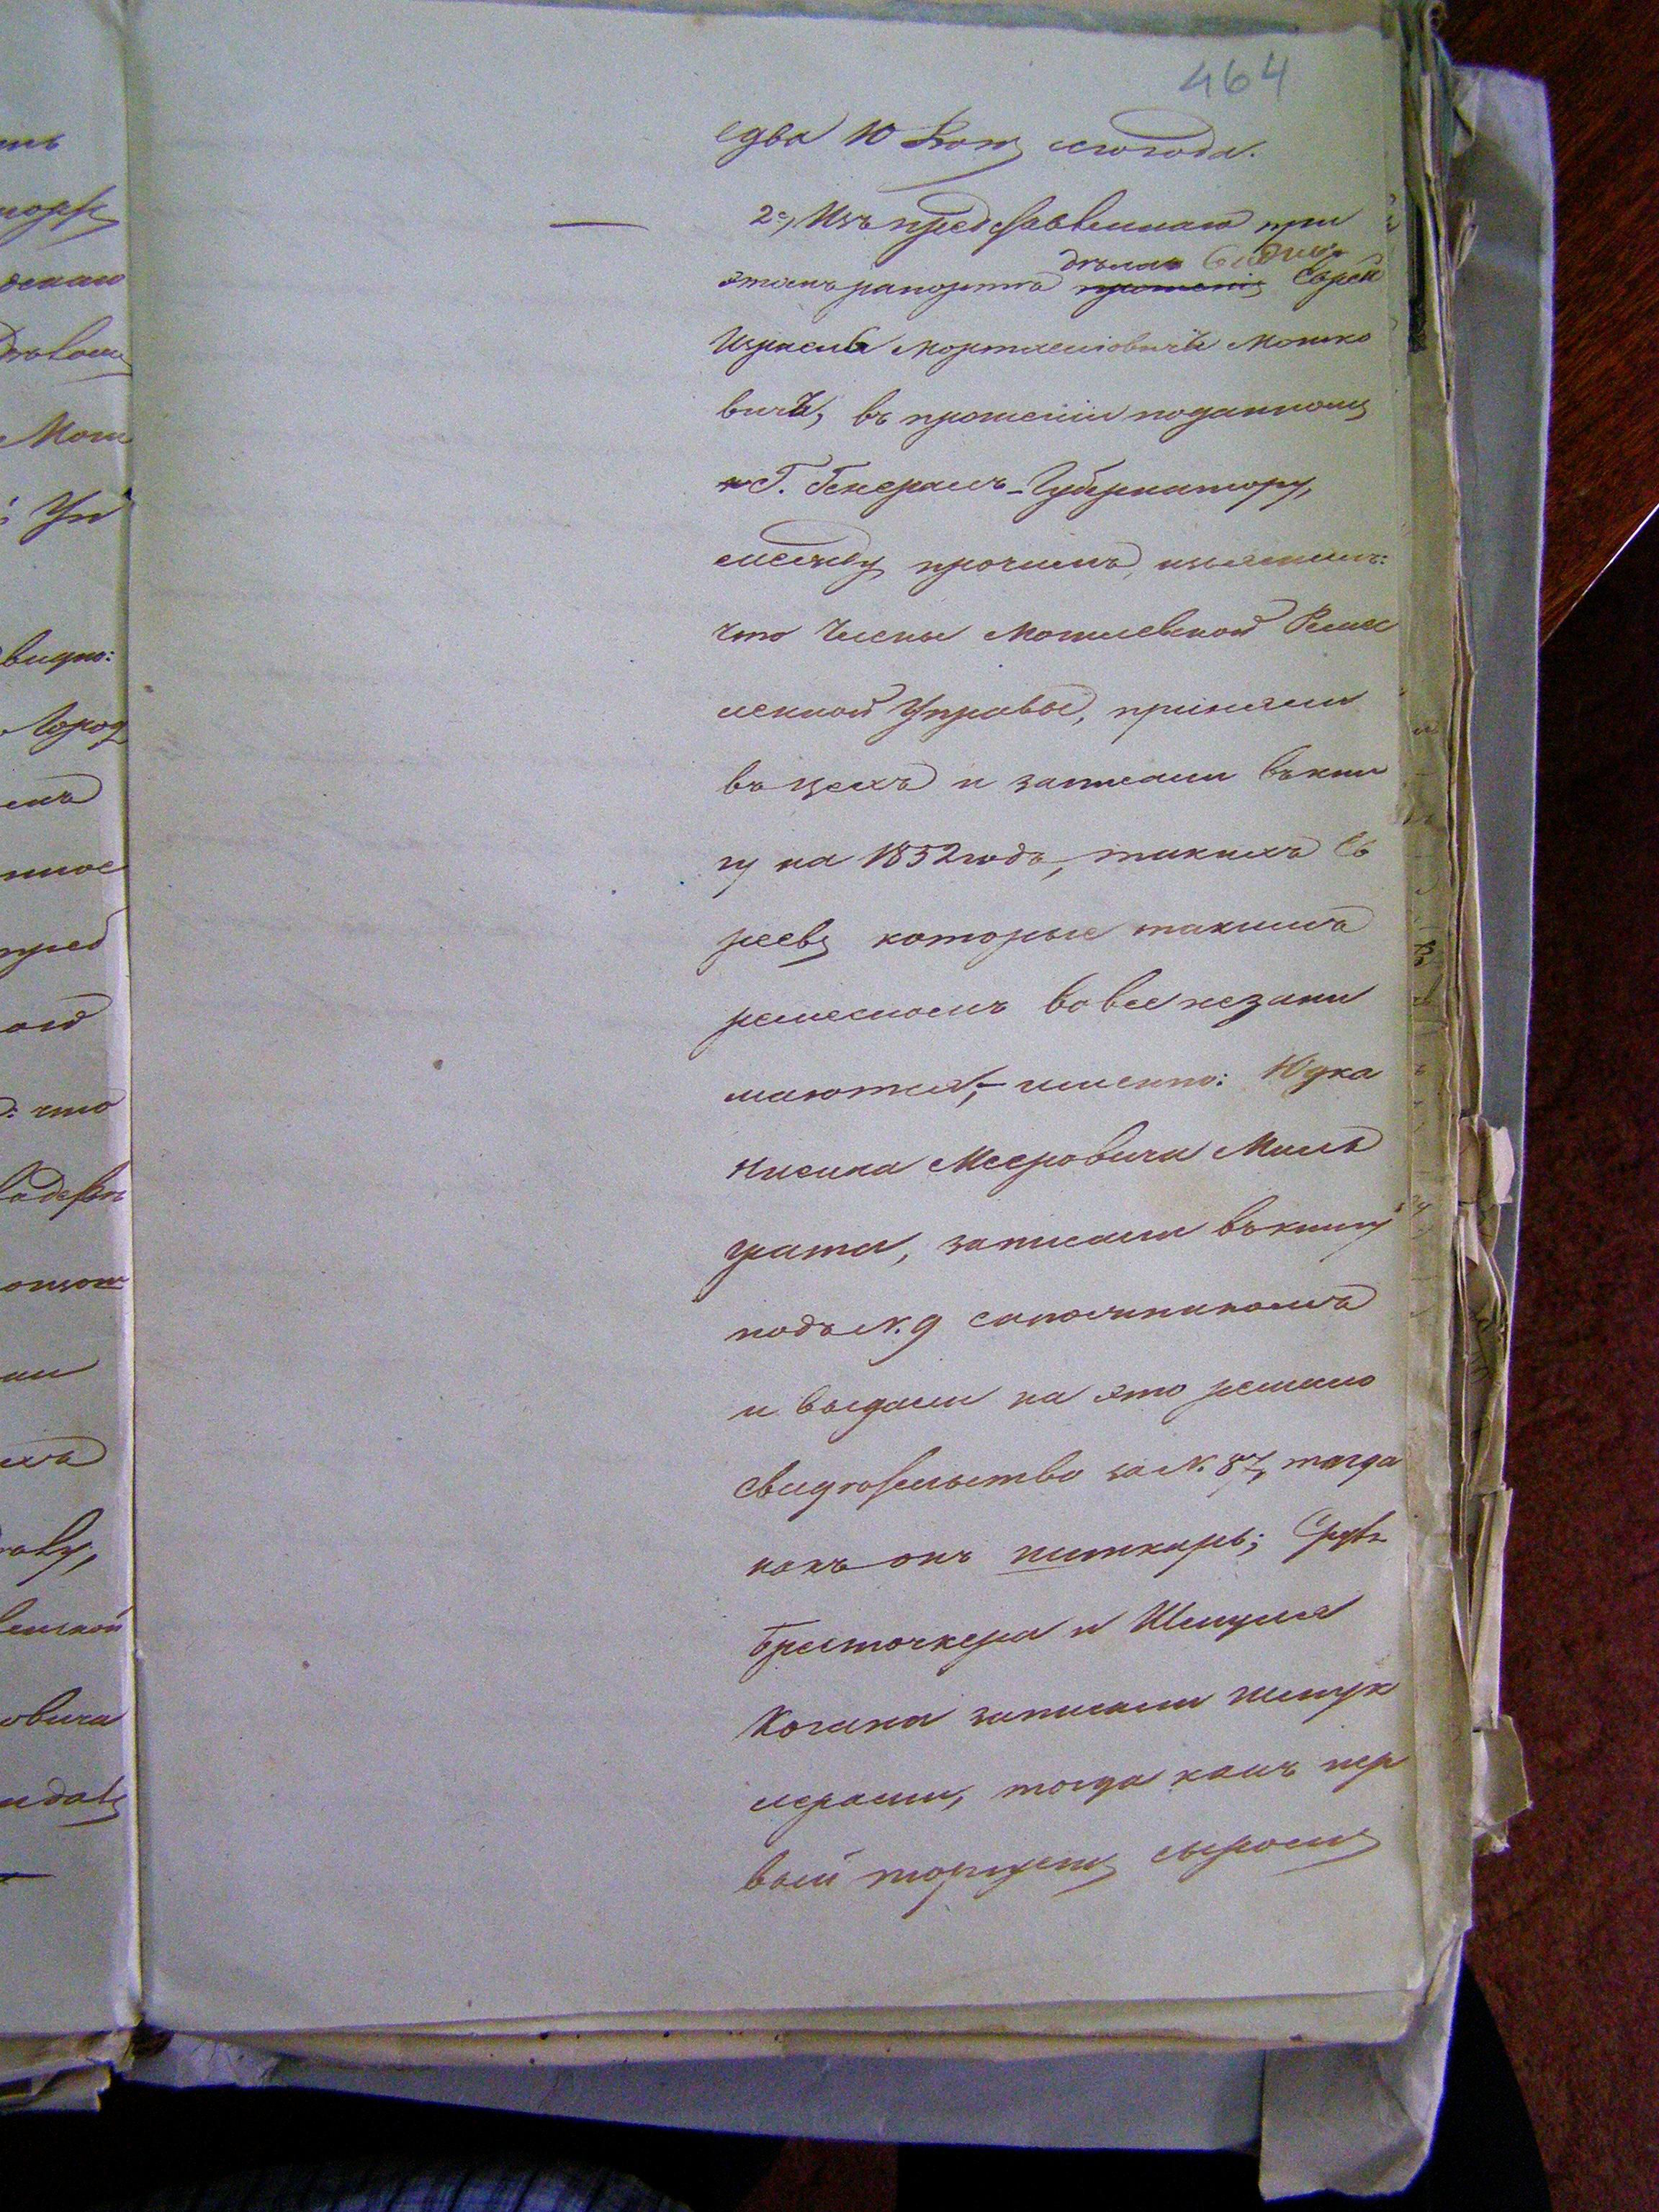 464
едва 10 Іюня сего года.
2е, Изъ представленнаго при
этомъ рапорта дѣла видно: Еврей
Израель Мортхелiовичъ Мошко
вичъ, въ прошеніи поданному
Г. Генералъ-Губернатору,
между прочимъ, изъяснилъ:
что Члены Могилевской Ремес
ленной Управы, приняли
въ цехъ и записали въ кни
гу на 1852 годъ, такихъ Ев
реевъ которые такимъ
ремесломъ вовсе незани
маются, именно: Юдка
Нисина Мееровича Миль
грата, записали въ книгу
подъ N. 9 сапожникомъ
и выдали на это ремесло
свидѣтельство за N. 87, тогда
какъ онъ шинкарь; Сруль
Бресточкера и Шмуля
Когана записали шмук
лерами, тогда какъ пер
вый торгуетъ сыромъ
нъ
Моги
Уп
видно:
Город
нное
пред
: что
али
овича